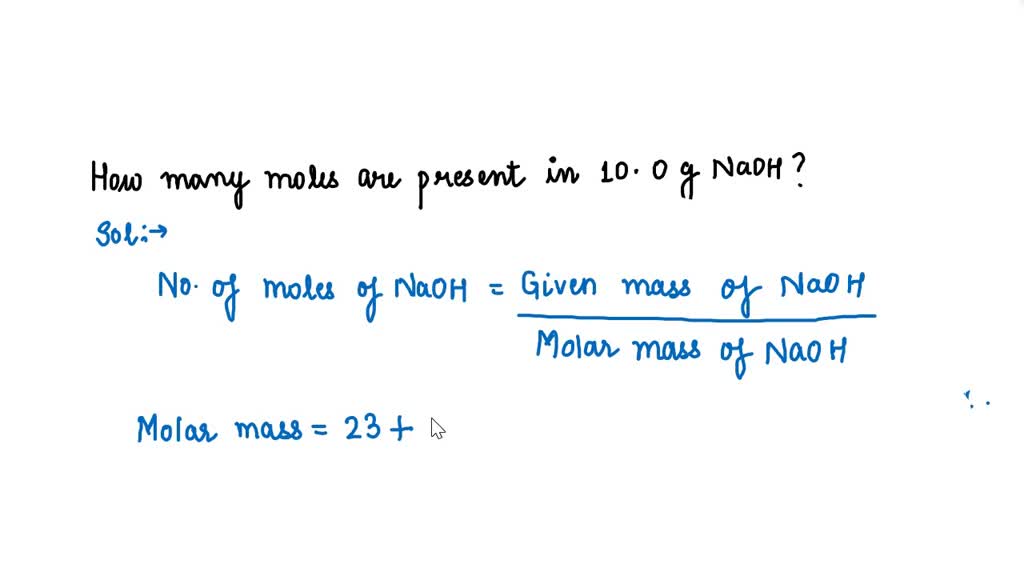 How many moles are present in 10.0 g NaOH?
Sol:→
No. of moles of NaOH = Given mass of NaOH
Molar mass of NaOH
Molar mass = 23 +